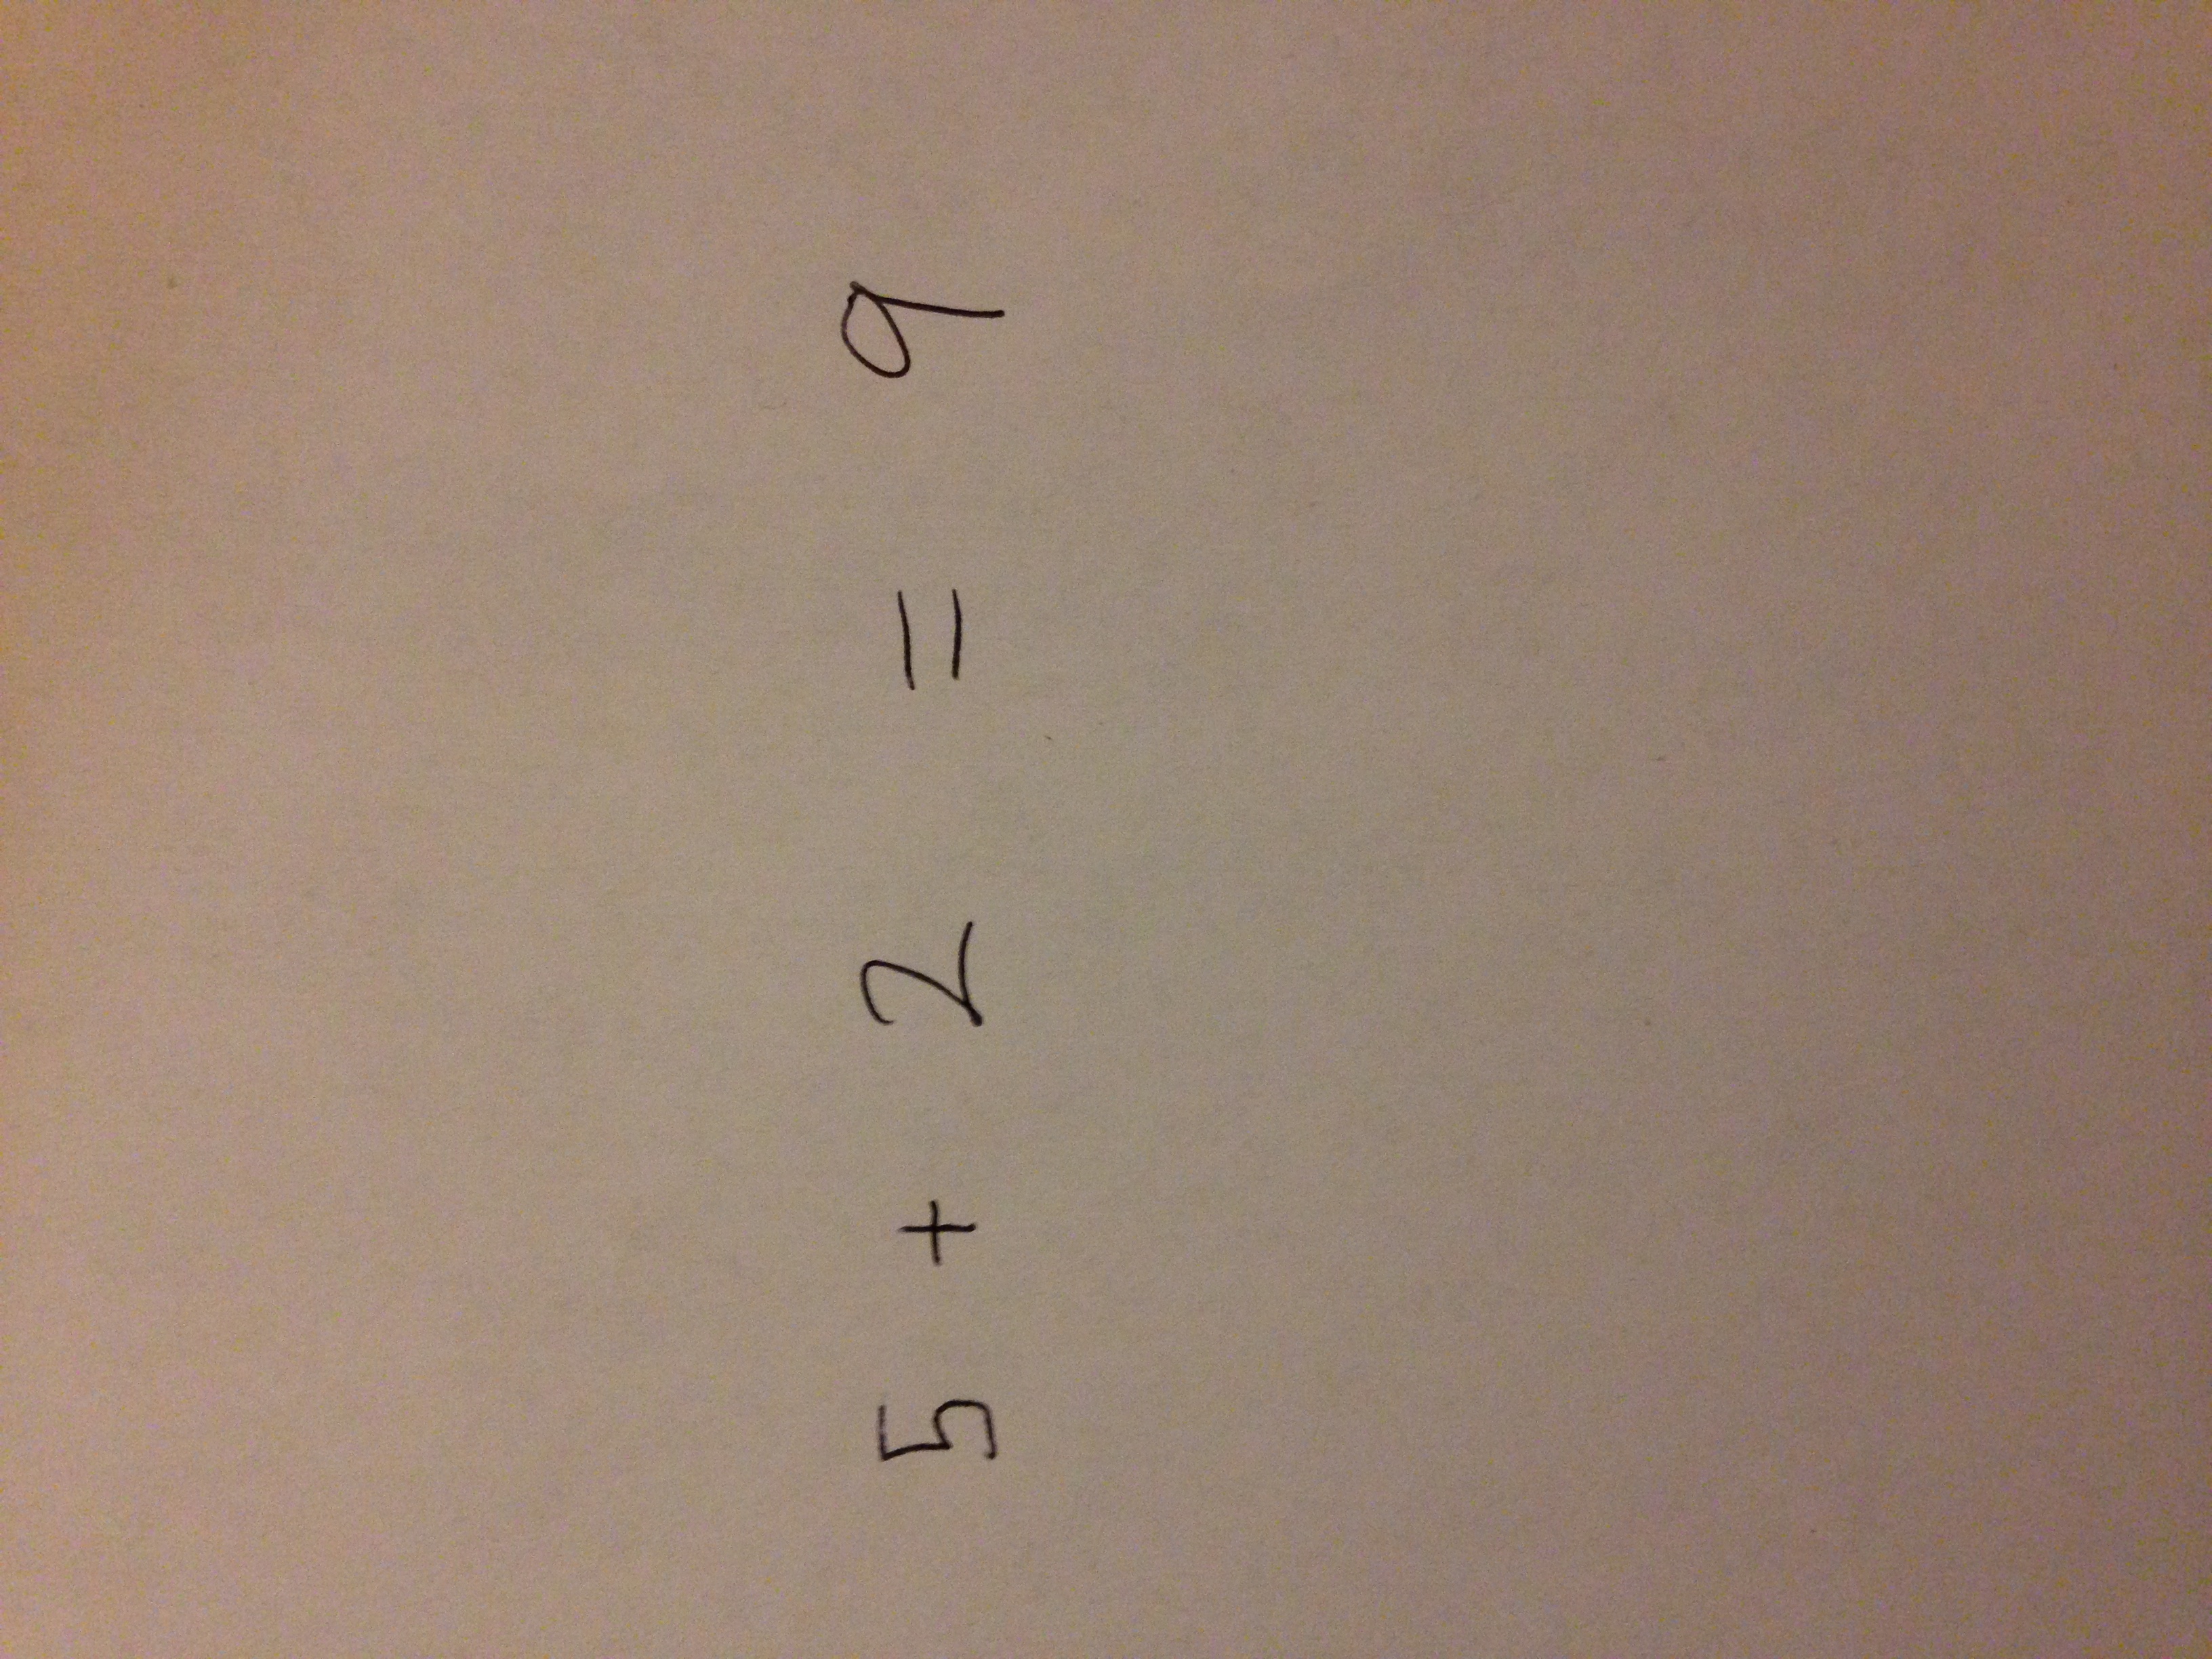 5 + 2 = 9